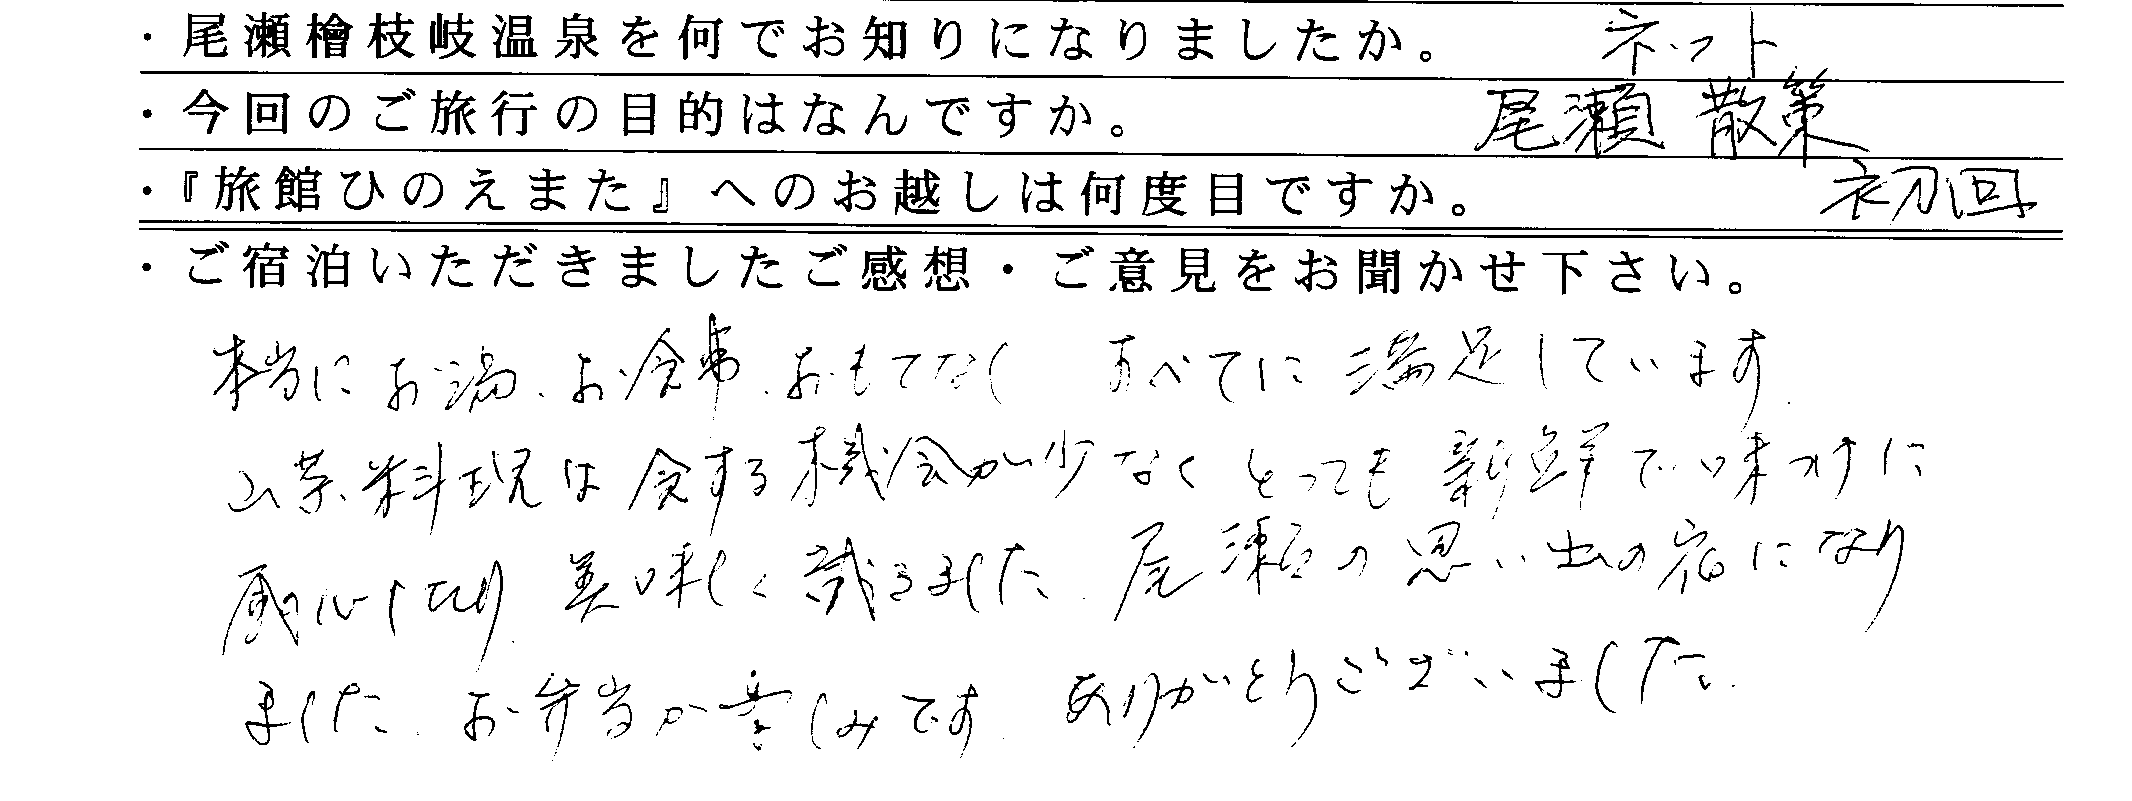 ・尾瀬檜枝岐温泉を何でお知りになりましたか。 ネット
・今回のご旅行の目的はなんですか。 尾瀬 散策
・『旅館ひのえまた』へのお越しは何度目ですか。 初回
・ご宿泊いただきましたご感想・ご意見をお聞かせ下さい。
本当にお湯、お食事、おもてなし すべてに満足しています。
山菜料理は食する機会が少なくとっても新鮮で味つけに
感心しなり、美味しく 戴きました。尾瀬の思い出の宿になり
ました。お弁当が楽しみです。ありがとうございました。